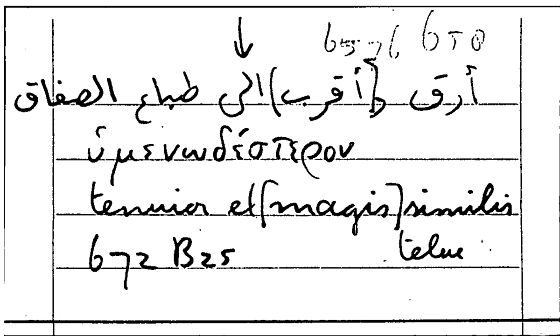 أرق و[أقرب] الى طباع الصفاق
ὑμενωδέστερον
tenuior et [magis] similis
tele
672 B25